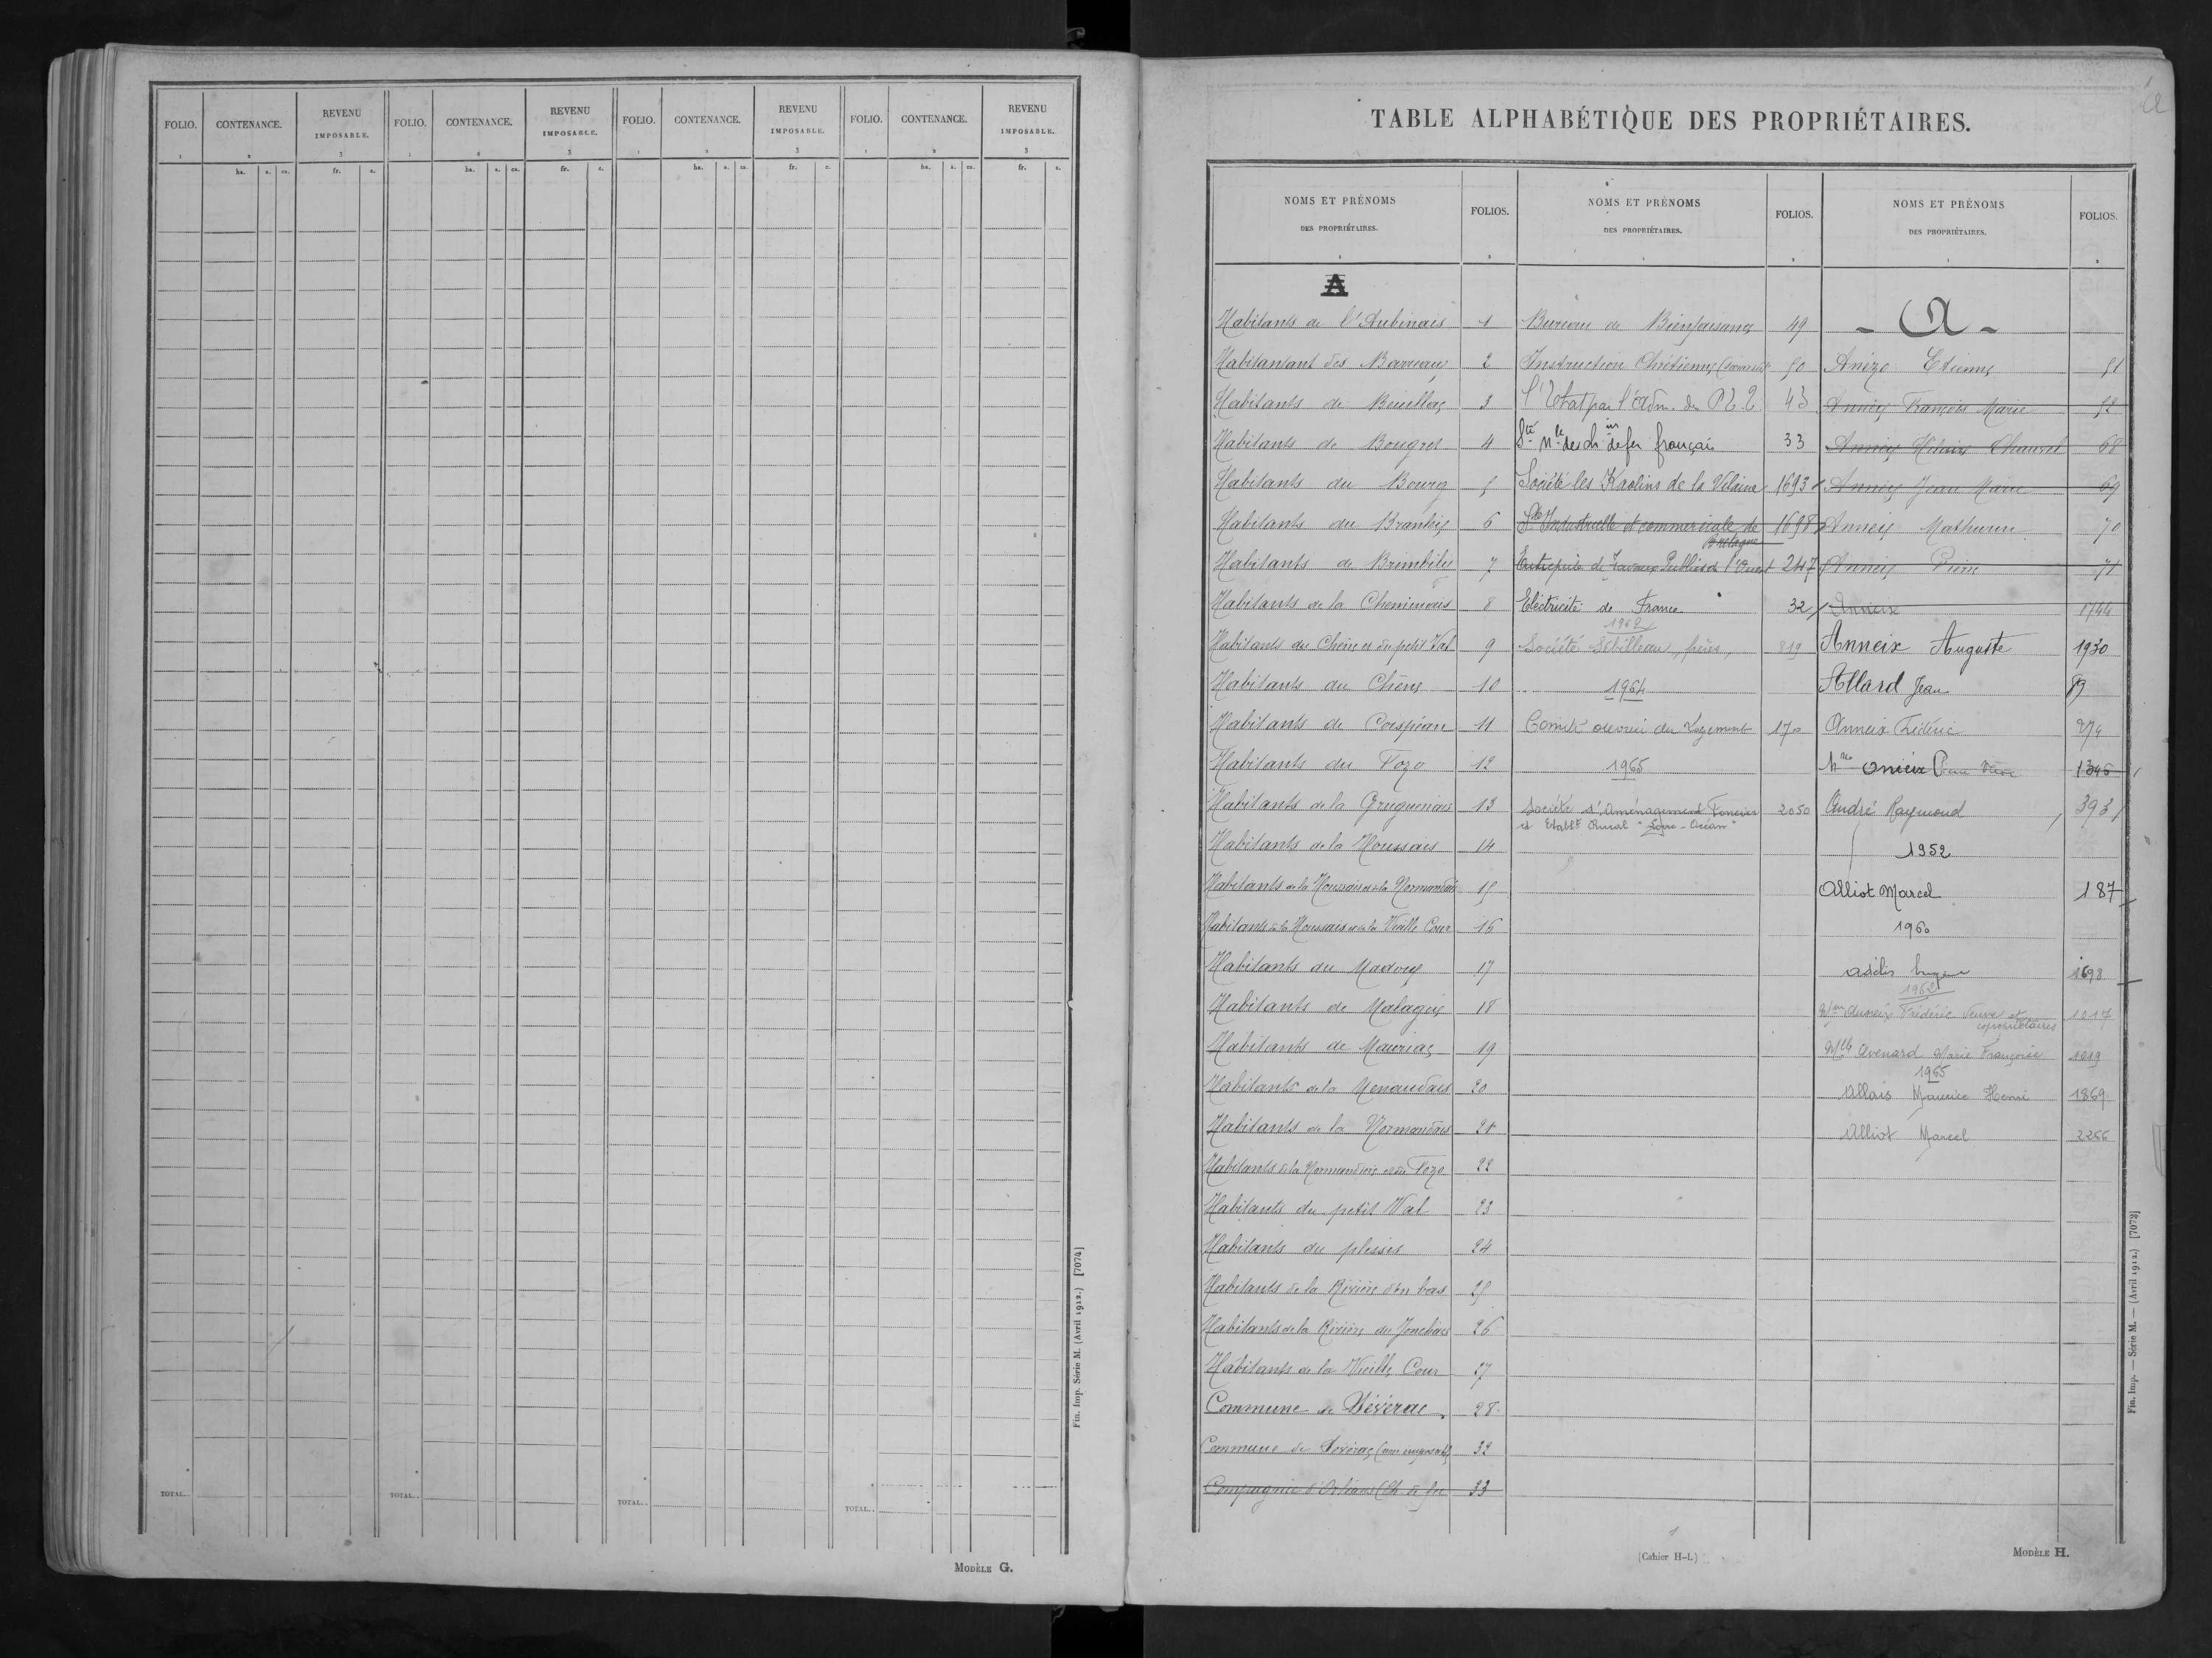 FOLIO. CONTENANCE. REVENU IMPOSABLE. FOLIO. CONTENANCE. REVENU IMPOSABLE. FOLIO. CONTENANCE. REVENU IMPOSABLE. FOLIO. CONTENANCE. REVENU IMPOSABLE.
1 2 3 1 2 3 1 2 3 1 2 3
ha. a. ca. fr. c. ha. a. ca. fr. c. ha. a. ca. fr. c. ha. a. ca. fr. c.
TOTAL.. TOTAL.. TOTAL.. TOTAL..
Fin. Imp. Série M. (Avril 1912.) [7074]
MODÈLE G.
TABLE ALPHABÉTIQUE DES PROPRIÉTAIRES.
NOMS ET PRÉNOMS
DES PROPRIÉTAIRES.
FOLIOS.
A
Habitants de l'Aubinais 1
Habitantant des Barreaux 2
Habitants de 3
Habitants de Bougret 4
Habitants du Bourg 5
Habitants du 6
Habitants de 7
Habitants de la 8
Habitants du Chêne et du petit Val 9
Habitants du Chêne 10
Habitants de Coispéan 11
Habitants du Fozo 12
Habitants de la 13
Habitants de la Houssais 14
Habitants de la Houssais et de la Normandais 15
Habitants de la Houssais et de la Vieille Cour 16
Habitants du 17
Habitants de 18
Habitants de Mauriac 19
Habitants de la Renaudais 20
Habitants de la Normandais 21
Habitants de la Normandais et du Fozo 22
Habitants du petit Val 23
Habitants du plessis 24
Habitants de la Rivière d'en bas 25
Habitants de la Rivière du 26
Habitants de la Vieille Cour 27
Commune de Sévérac 28
Commune de Sévérac 32
Compagnie d'Orléans (Ch. de fer 33
NOMS ET PRÉNOMS
DES PROPRIÉTAIRES.
FOLIOS.
Bureau de Bienfaisance 49
Instruction Chrétienne 50
l'Etat par l'adm. des P.T.T. 43
Sté Nle des ch ins de fer français 33
Société les Kaolins de la Vilaine 1693
Sté Industrielle et commerciale de 1698
Bretagne
Entreprise de Travaux Publics de l'Ouest 247
Electricité de France 32
1962
Société Sébilleau, frères, 819
1964
Comité ouvrier du Logement 170
1965
Société d'Aménagement Foncier 2050
et Etablt Rural "Loire-Océan"
NOMS ET PRÉNOMS
DES PROPRIÉTAIRES.
FOLIOS.
- A -
Anézo Etienne 51
Anneix François Marie 52
Anneix 68
Anneix Jean Marie 69
Anneix Mathurin 70
Anneix Pierre 71
Anneix 1744
Anneix Auguste 1930
Allard Jean 89
Anneix Frédéric 274
Anneix 1346
André Raymond 393
1952
Alliot Marcel 187
1960
1698
1962
Anneix Frédéric Veuve et 1017
copropriétaires
Mlle Avenard Marie Françoise 1019
1965
Allais Maurice Henri 1869
Alliot Marcel 2256
Fin. Imp. — Série M. — (Avril 1912.) [7073]
(Cahier H-L)
MODÈLE H.